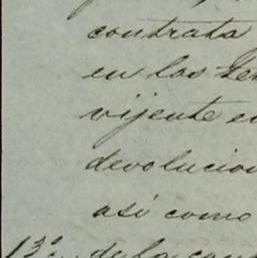 contrata
en los ter
vijente en
devolucion
asi como
13º de la con